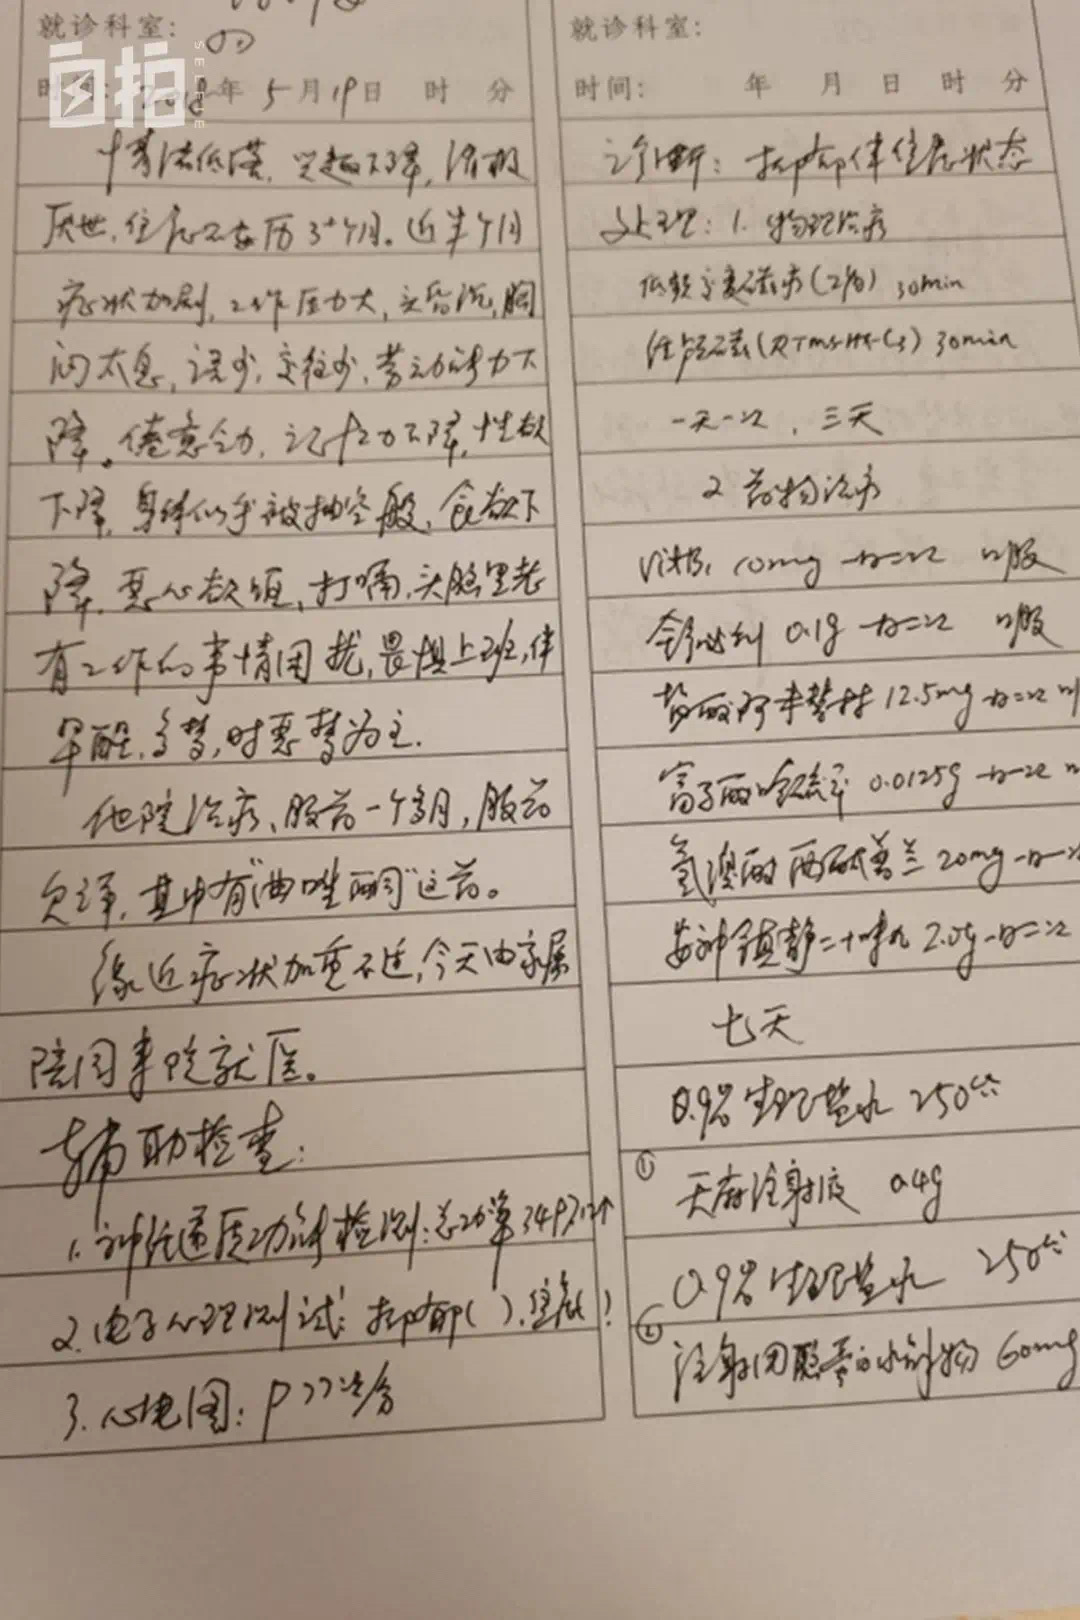 自拍
SELFIE
就诊科室:
时间: 2018年 5月19日 时 分
情绪低落,兴趣下降,消极
厌世,焦虑不安历3+个月。近半个月
症状加剧,工作压力大,头昏沉,胸
闷太息,语少,交往少,劳动能力下
降。倦怠乏力,记忆力下降,性欲
下降,身体似乎被抽空般,食欲下
降,恶心欲呕,打嗝,头脑里老
有工作的事情困扰,畏惧上班,伴
早醒,多梦,时恶梦为主.
他院治疗,服药一个多月,服药
欠详,其中有“曲唑酮”这药。
缘近症状加重不适,今天由家属
陪同来院就医。
辅助检查:
1.神经递质功能检测:总功率
2.电子心理测试:抑郁( ),焦虑
3.心电图:
就诊科室:
时间: 年 月 日 时 分
诊断:抑郁伴焦虑状态
处理:1.物理治疗
30min
30min
一天一次,三天
2 药物治疗
VitB1 10mg 一日二次 口服
舒必利 0.1g 一日二次 口服
盐酸阿米替林 12.5mg 一日二次 口
富马酸喹硫平 0.0125g 一日一次
氢溴酸西酞普兰 20mg 一日一次
安神镇静二十味丸 2.0g 一日二次
七天
0.9% 生理盐水 250
① 天麻注射液 0.4g
0.9% 生理盐水 250
② 注射用脑蛋白水解物 60mg